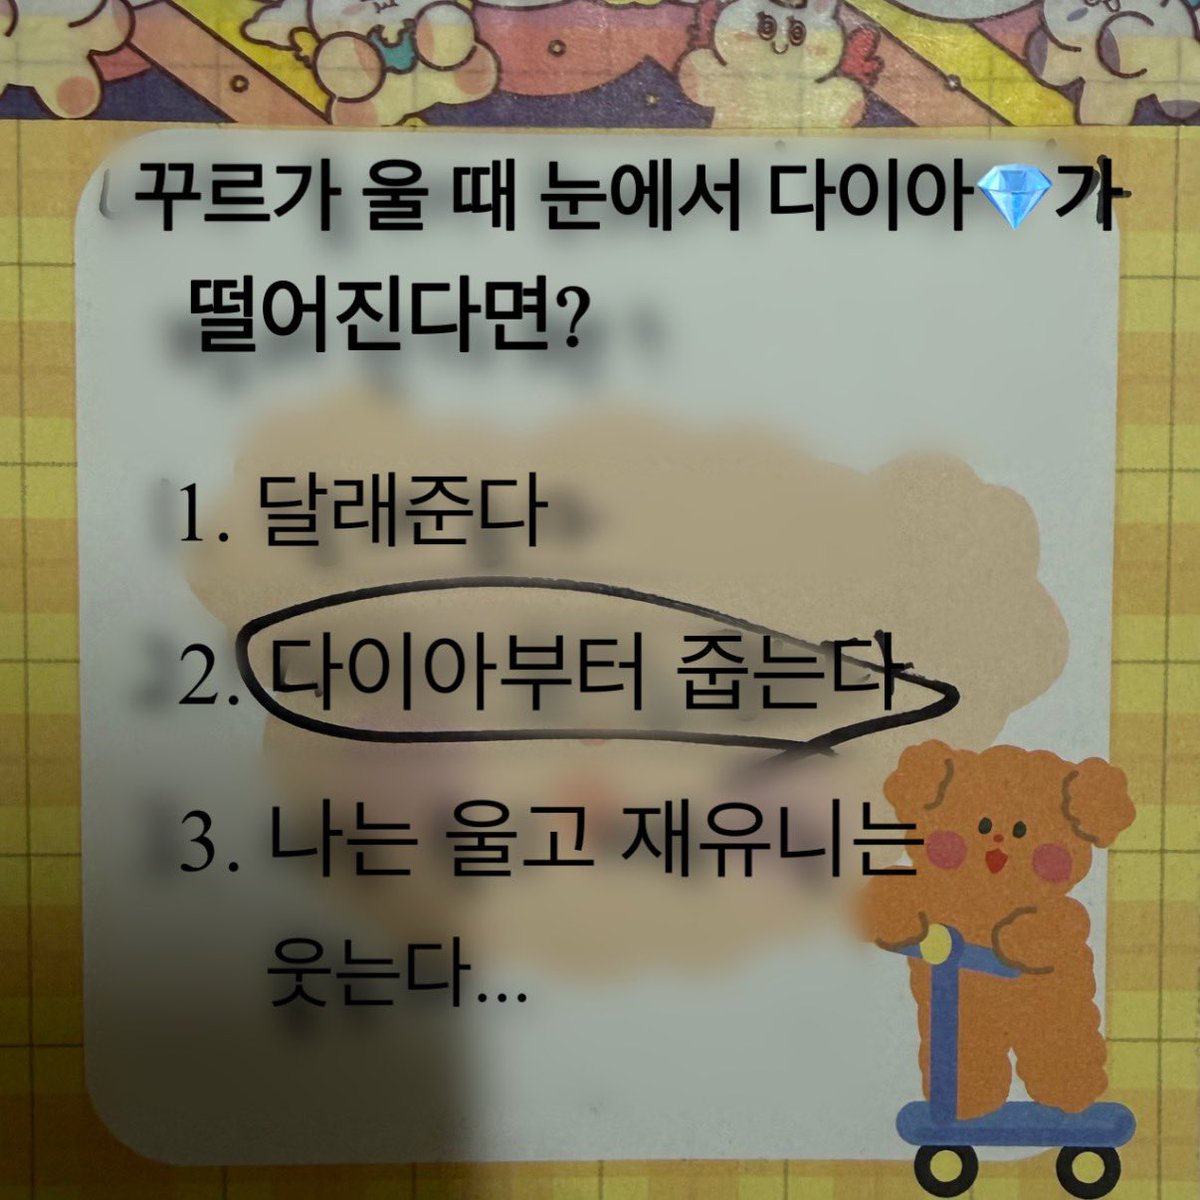 꾸르가 울 때 눈에서 다이아💎가
떨어진다면?
1. 달래준다
2. 다이아부터 줍는다
3. 나는 울고 재유니는
웃는다...